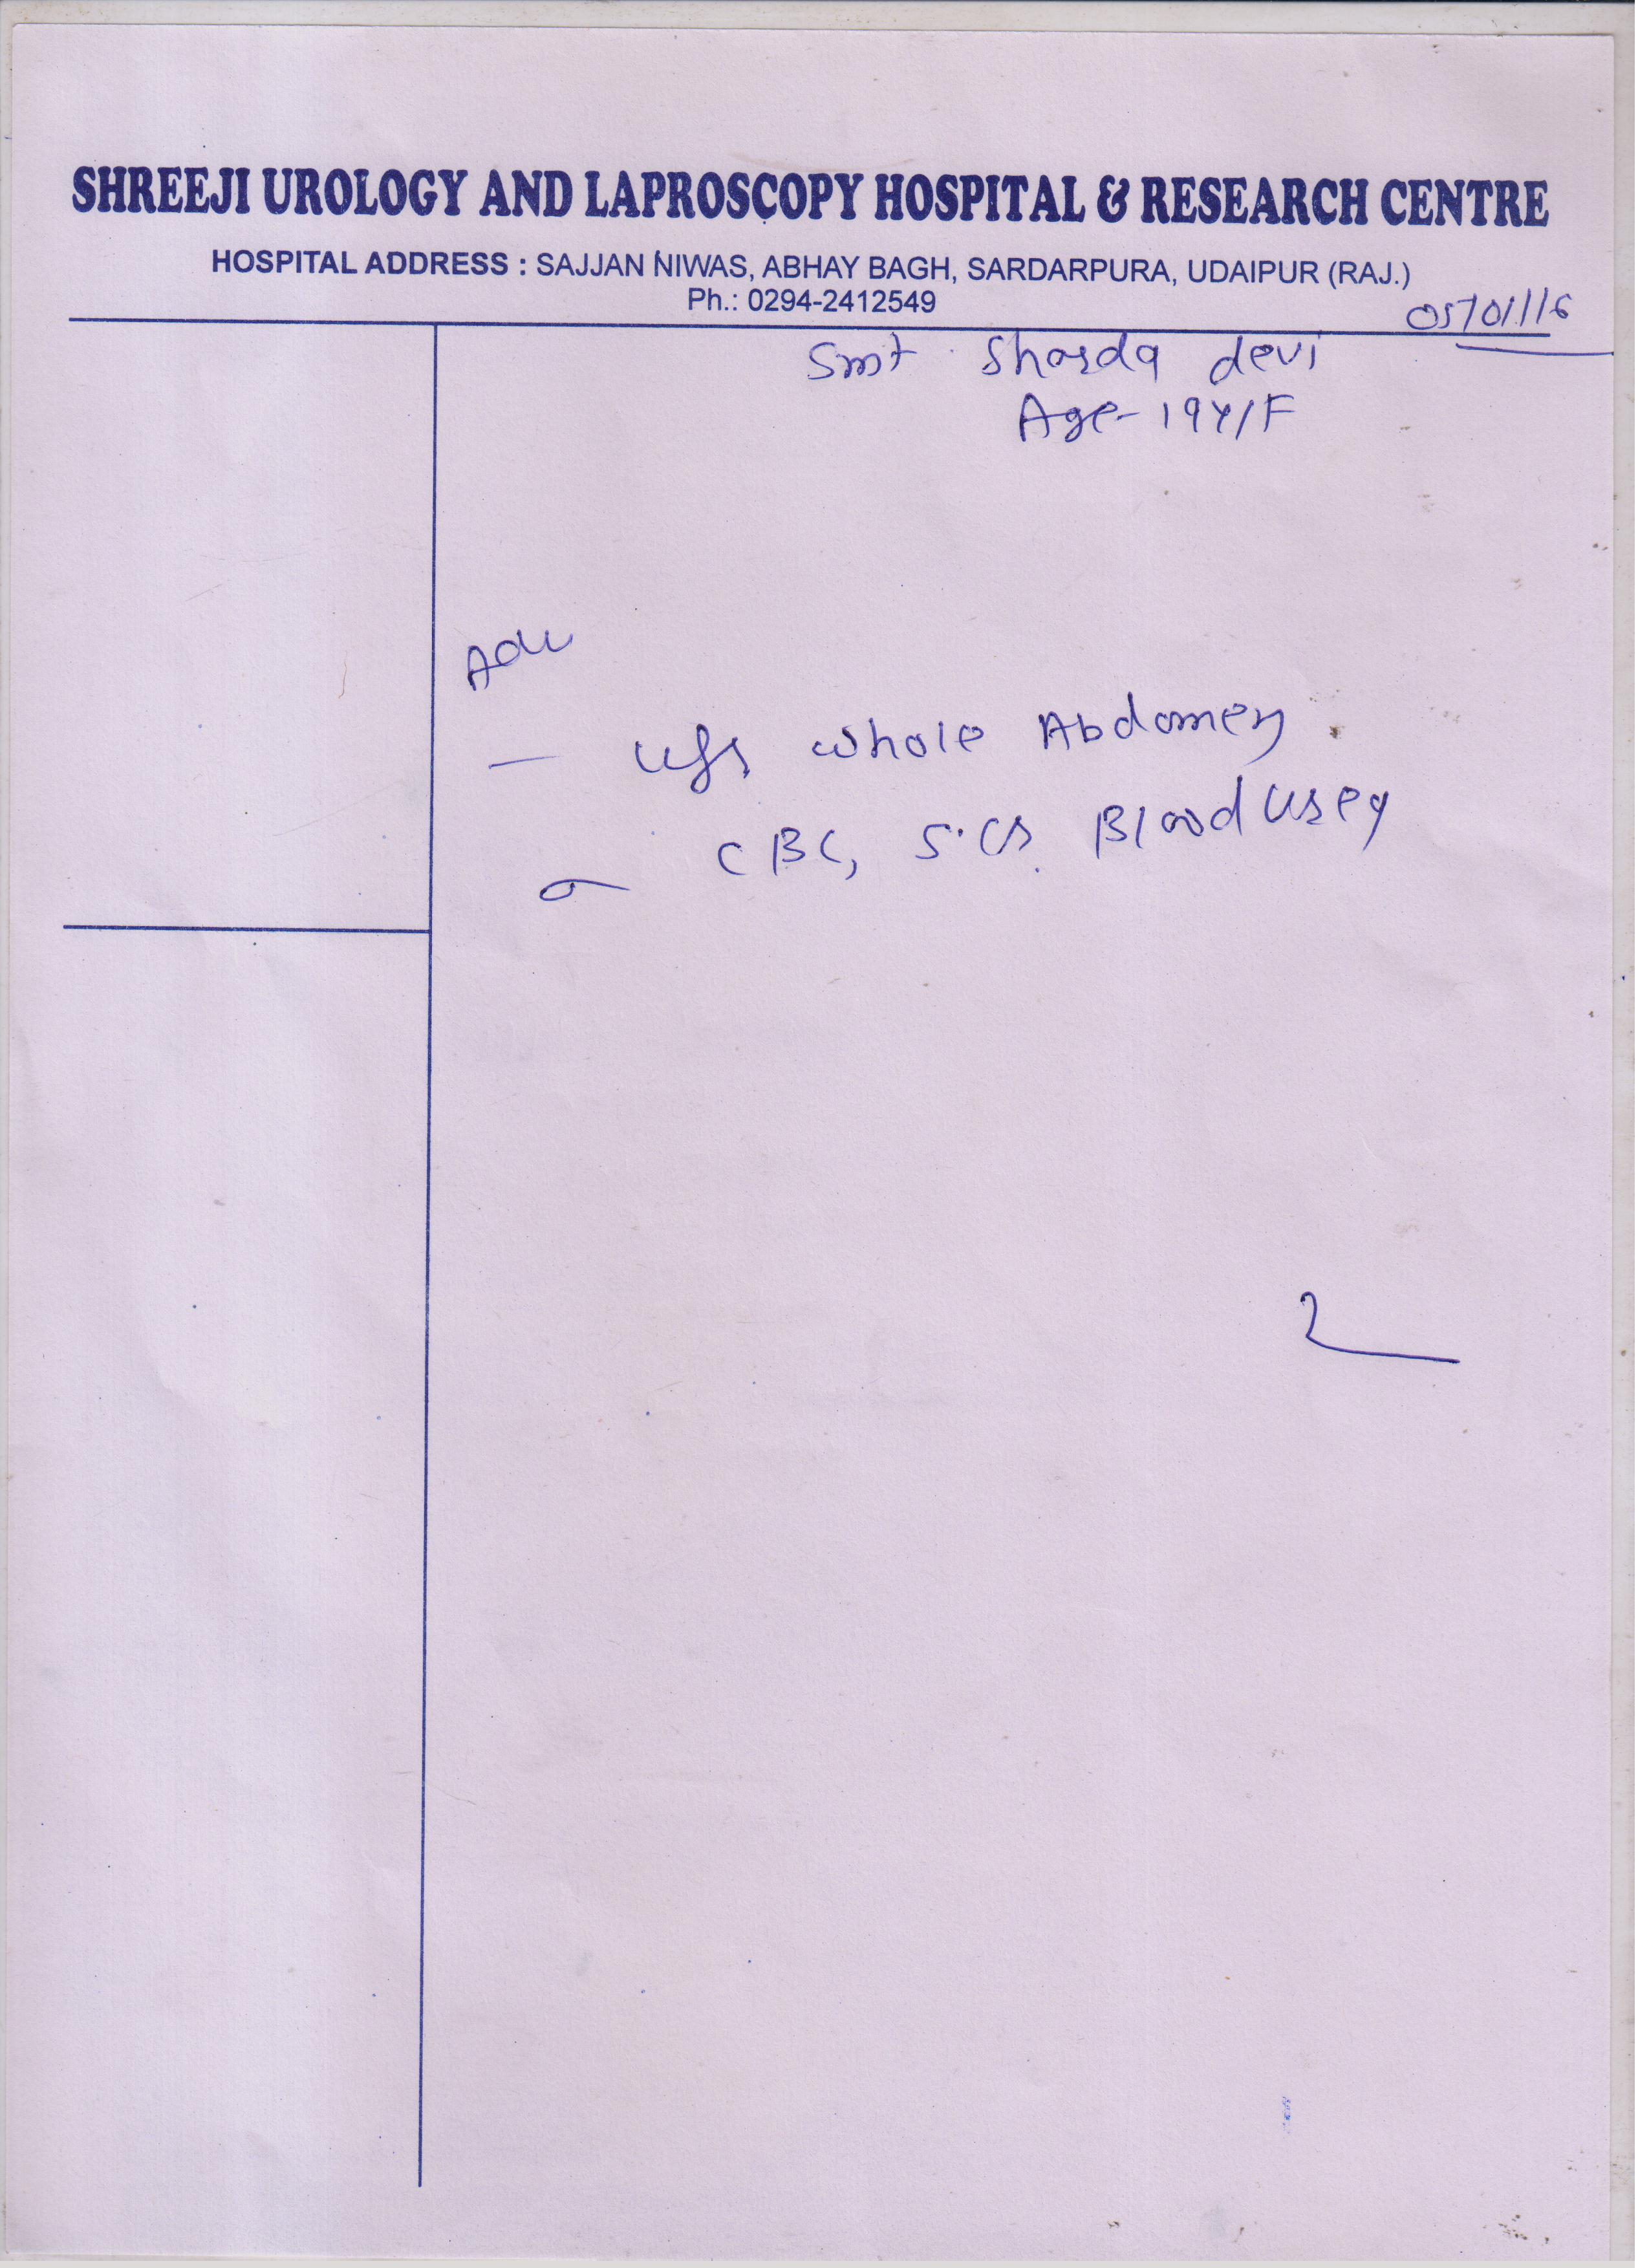 SHREEJI UROLOGY AND LAPROSCOPY HOSPITAL & RESEARCH CENTRE
HOSPITAL ADDRESS : SAJJAN NIWAS, ABHAY BAGH, SARDARPURA, UDAIPUR (RAJ.)
Ph.: 0294-2412549
05/01/16
Smt Sharda devi
Age- 19Y/F
Adv
- U/S whole Abdomen
CBC, S.Cr. Blood Urea